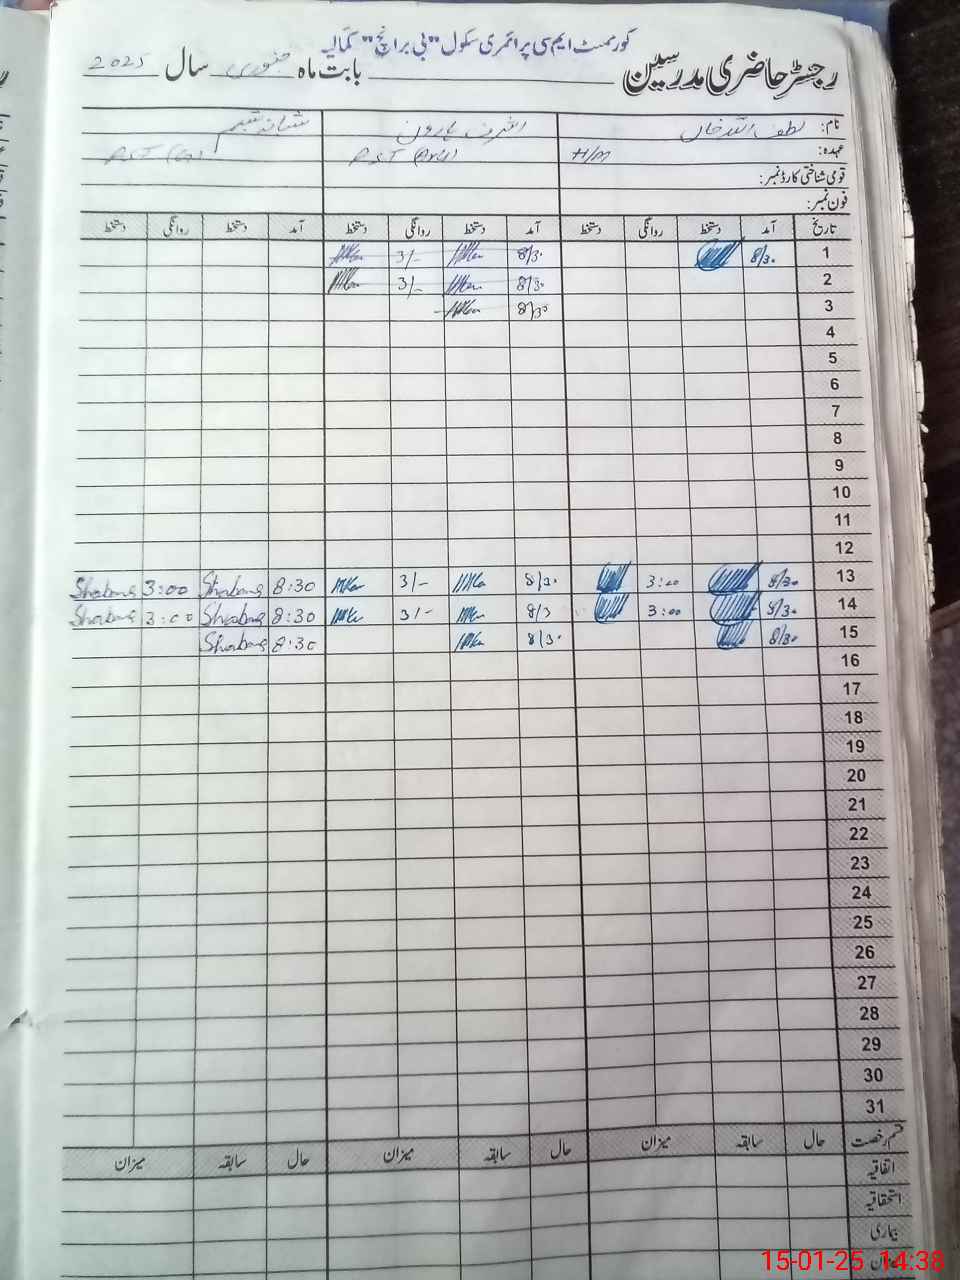 گورنمنٹ ایم سی پرائمری سکول "بی برانچ" کمالیہ
رجسٹر حاضری مدرسین بابت ماہ جنوری سال 2025
نام: لطف اللہ خان اشرف ہارون شبانہ تبسم
عہدہ: H/M PST PST
قومی شناختی کارڈ نمبر:
فون نمبر:
تاریخ آمد دستخط روانگی دستخط آمد دستخط روانگی دستخط آمد دستخط روانگی دستخط
1 8/30 8/30 3/-
2 8/30 3/-
3 8/30
4
5
6
7
8
9
10
11
12
13 8/30 3:00 8/30 3/- 8:30 Shabana 3:00 Shabana
14 8/30 3:00 8/3 3/- 8:30 Shabana 3:00 Shabana
15 8/30 8/30 8:30 Shabana
16
17
18
19
20
21
22
23
24
25
26
27
28
29
30
31
قسم رخصت حال سابقہ میزان حال سابقہ میزان حال سابقہ میزان
اتفاقیہ
استحقاقیہ
بیماری
15-01-25 14:38